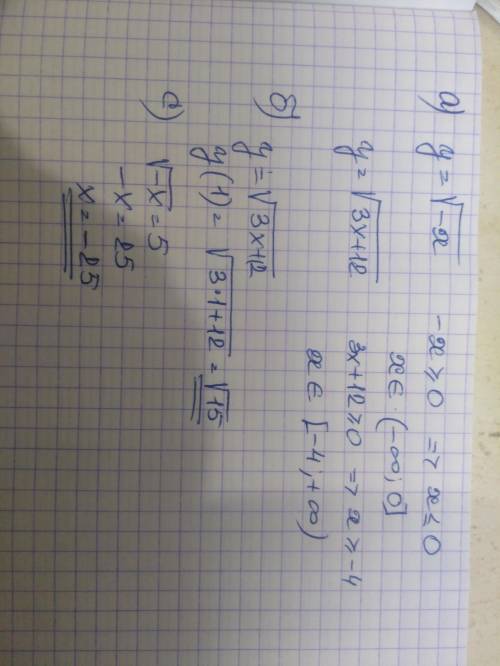 а) y = √-x   -x ≥ 0 => x ≤ 0
x ∈ (-∞; 0]
y = √3x+12   3x+12 ≥ 0 => x ≥ -4
x ∈ [-4; +∞)
б) y = √3x+12
y(1) = √3·1+12 = √15
с) √-x = 5
-x = 25
x = -25